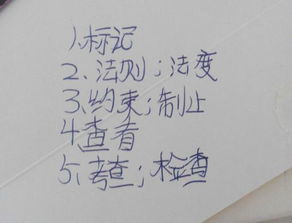 1、标记
2、法则；法度
3、约束；制止
4查看
5、考查；检查